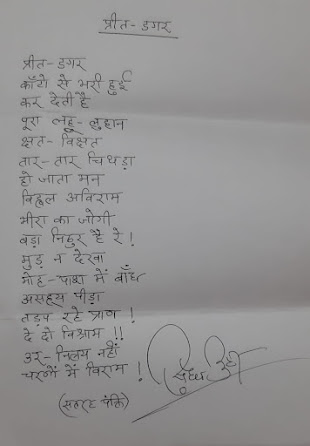 प्रीत-डगर
प्रीत-डगर
काँटों से भरी हुई
कर देती है
पूरा लहू-लुहान
क्षत-विक्षत
तार-तार चिथड़ा
हो जाता मन
विह्वल अविराम
मीरा का जोगी
बड़ा निठुर है रे!
मुड़ न देखा
मोह-पाश में बाँध
असहय पीड़ा
तड़प रहे प्राण!
दे दो विश्राम!!
उर-निलय नहीं
चरणों में विराम!